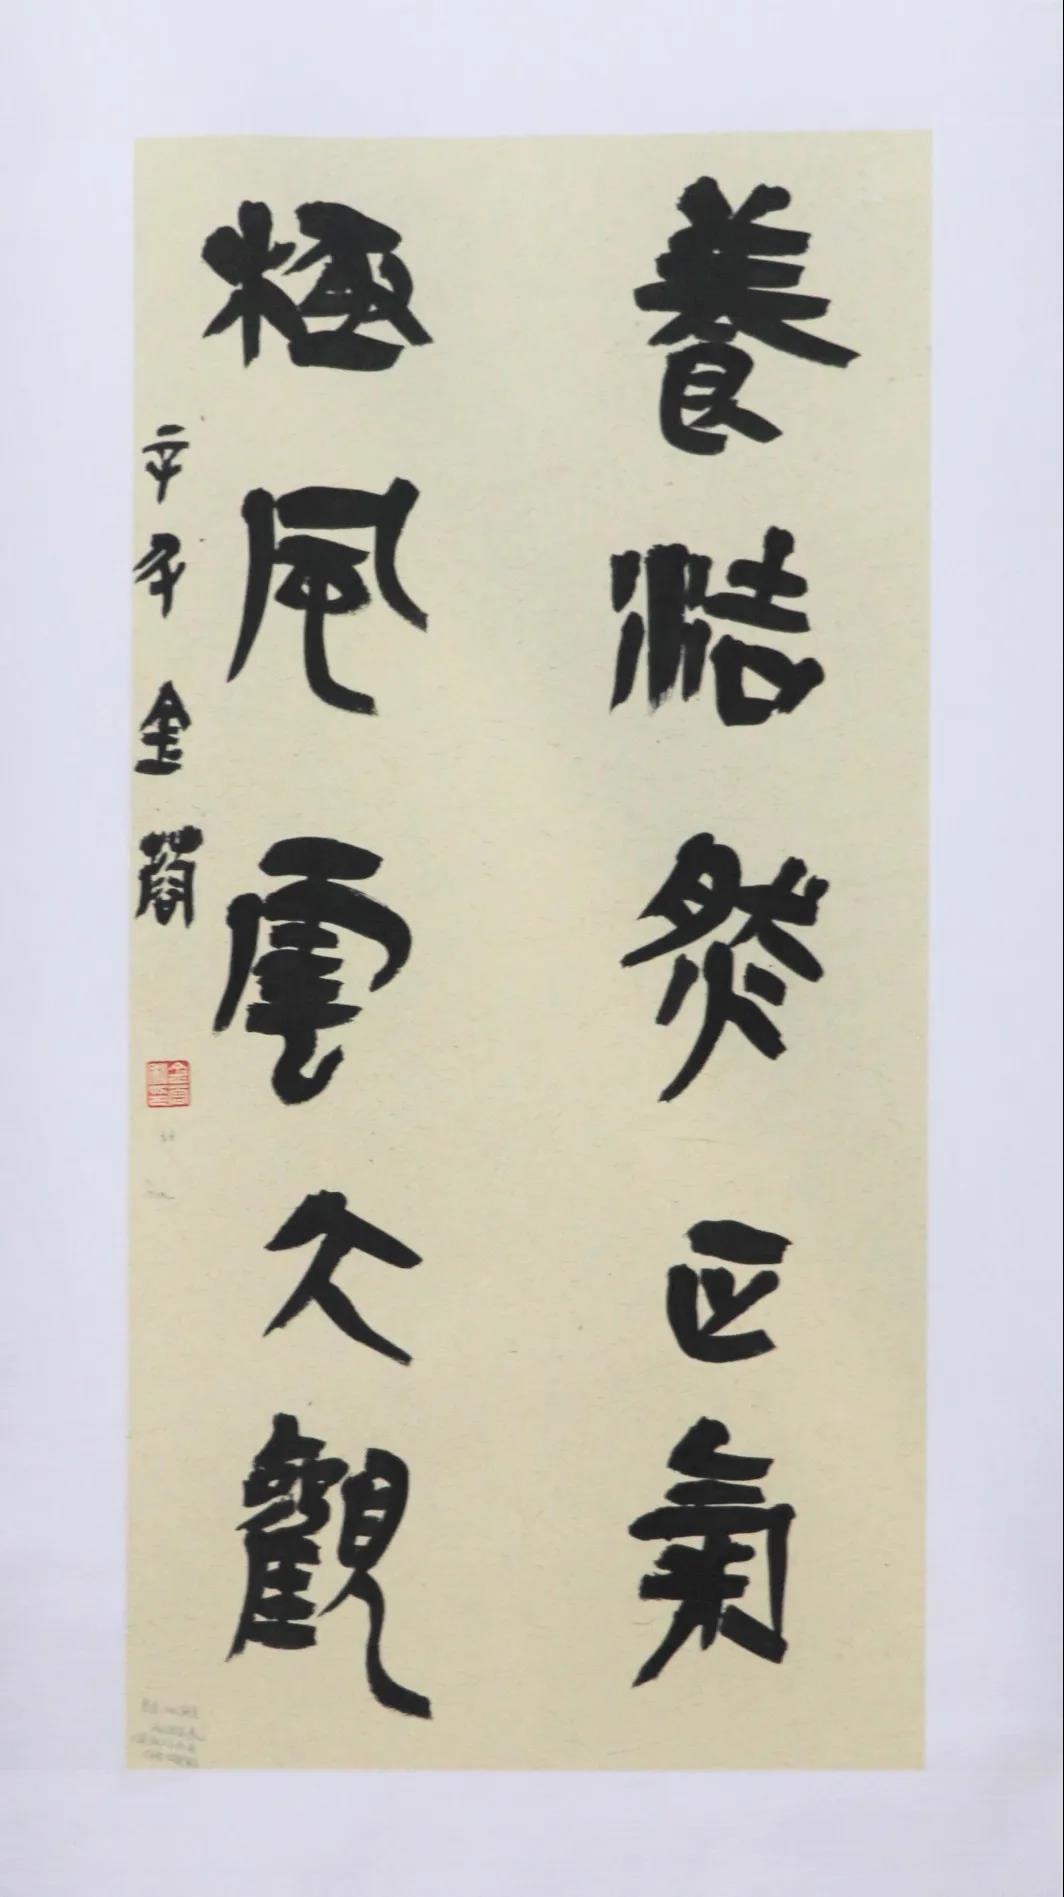 養浩然正氣
極風雲大觀
辛丑金閣